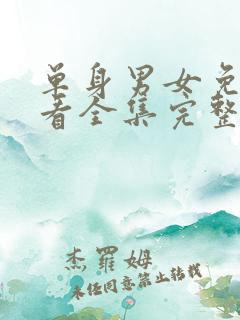 单身男女免
看全集完整
杰罗姆
未经同意禁止转载